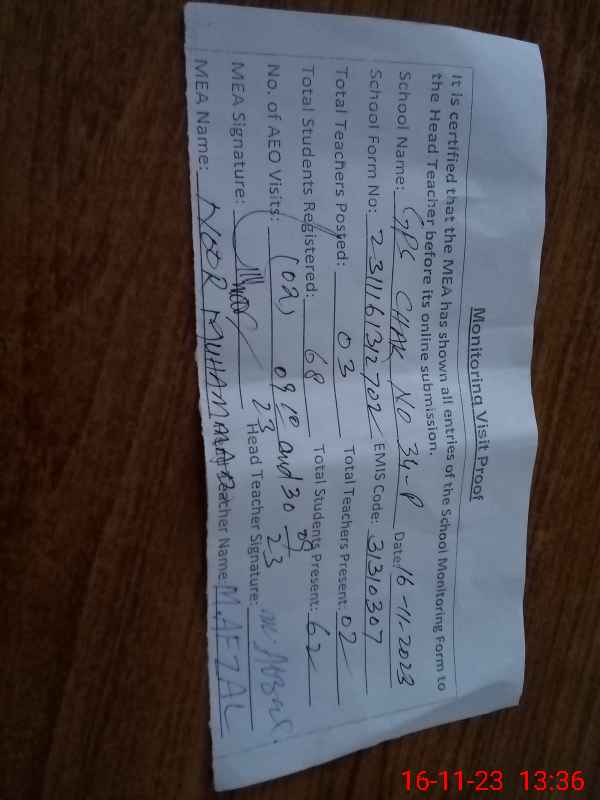 Monitoring Visit Proof
It is certified that the MEA has shown all entries of the School Monitoring Form to
the Head Teacher before its online submission.
School Name: GPS CHAK NO 34-P Date: 16-11-2023
School Form No: 2311161312702 EMIS Code: 31310307
Total Teachers Posted: 03 Total Teachers Present: 02
Total Students Registered: 68 Total Students Present: 62
No. of AEO Visits: (02) 09 10 23 and 30 09 23
MEA Signature: Head Teacher Signature:
MEA Name: NOOR MUHAMMAD Teacher Name: M.AFZAL
16-11-23 13:36